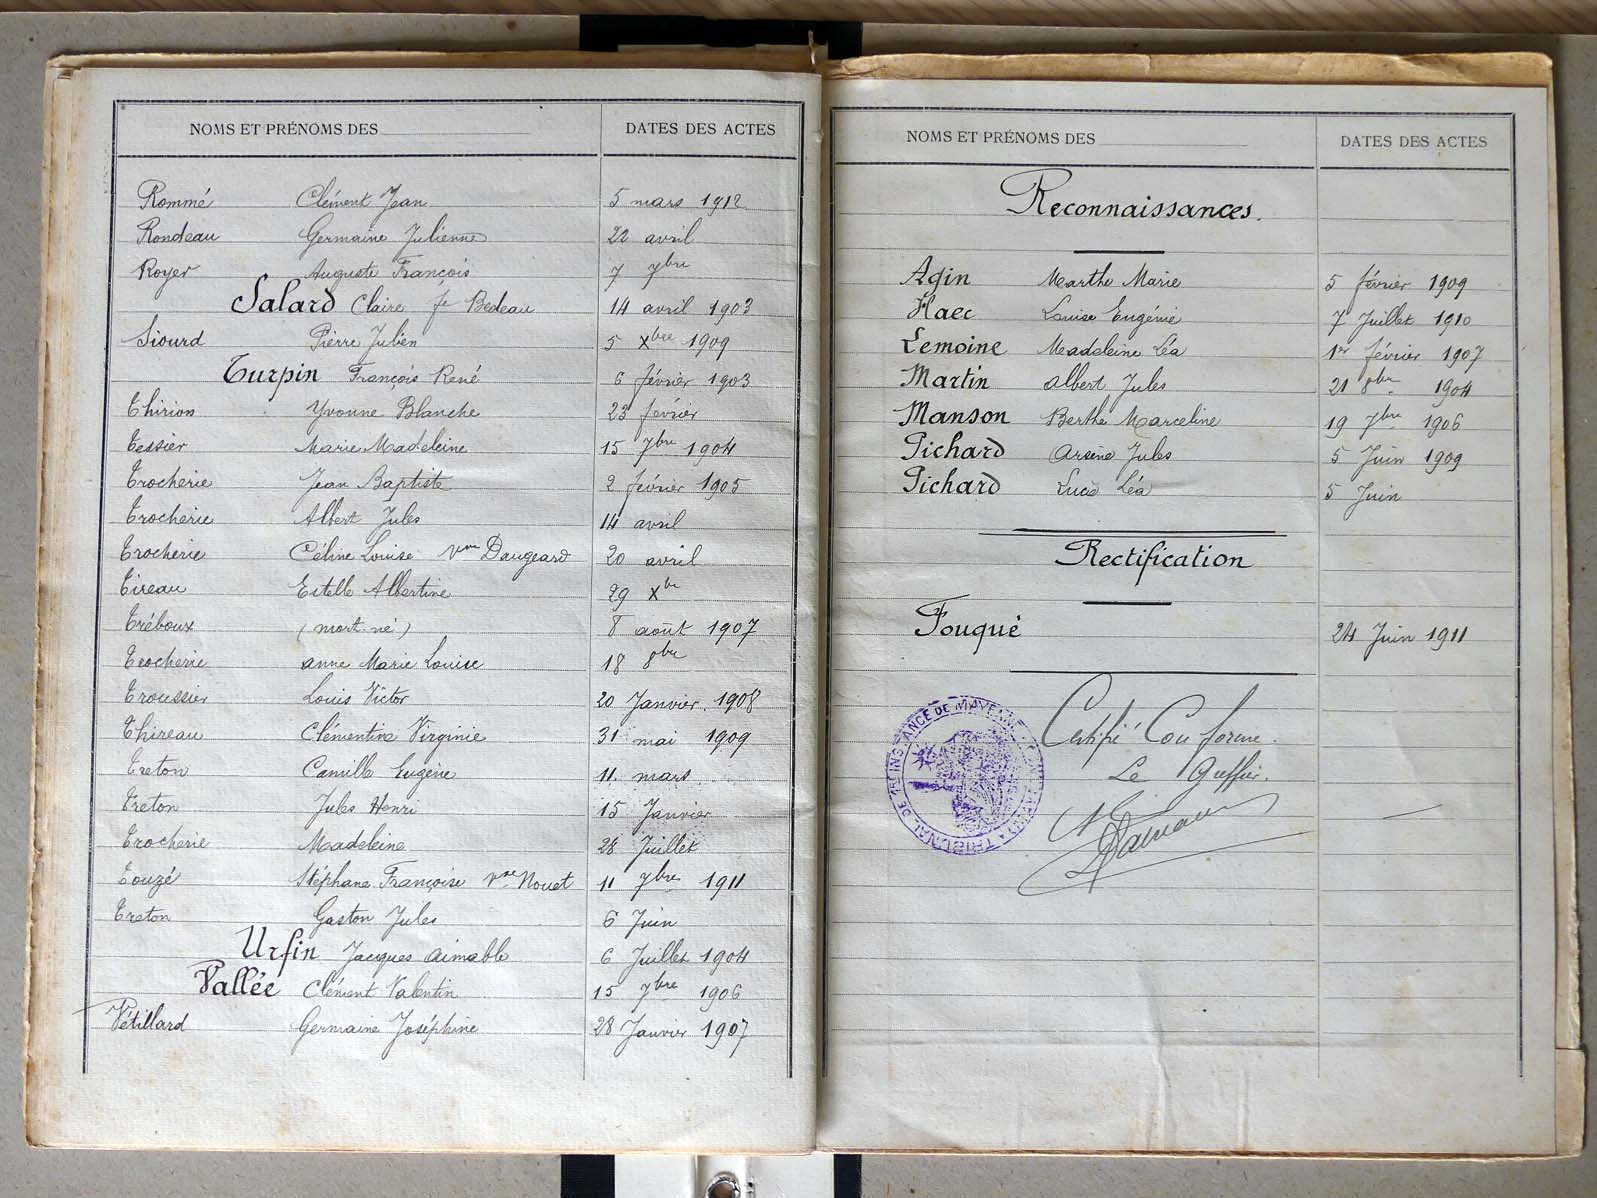 NOMS ET PRÉNOMS DES DATES DES ACTES
Rommé Clément Jean 5 mars 1912
Rondeau Germaine Julienne 22 avril
Royer Auguste François 7 7bre
Salard Claire fe Bedeau 14 avril 1903
Siourd Pierre Julien 5 Xbre 1909
Turpin François René 6 février 1903
Thirion Yvonne Blanche 23 février
Tessier Marie Madeleine 15 7bre 1904
Trocherie Jean Baptiste 2 février 1905
Trocherie Albert Jules 14 avril
Trocherie Céline Louise vve Daugeard 20 avril
Tireau Estelle Albertine 29 Xbre
Tréboux (mort-né) 8 août 1907
Trocherie Anne Marie Louise 18 8bre
Troussier Louis Victor 20 Janvier 1908
Thireau Clémentine Virginie 31 mai 1909
Treton Camille Eugène 11 mars
Treton Jules Henri 15 Janvier
Trocherie Madeleine 28 Juillet
Touzé Stéphane Françoise vve Nouet 11 7bre 1911
Treton Gaston Jules 6 Juin
Urfin Jacques Aimable 6 Juillet 1904
Vallée Clément Valentin 15 7bre 1906
Vétillard Germaine Joséphine 28 Janvier 1907
NOMS ET PRÉNOMS DES DATES DES ACTES
Reconnaissances.
Agin Marthe Marie 5 février 1909
Haec Louise Eugénie 7 Juillet 1910
Lemoine Madeleine Léa 1er février 1907
Martin Albert Jules 21 8bre 1904
Manson Berthe Marceline 19 7bre 1906
Pichard Arsène Jules 5 Juin 1909
Pichard Lucie Léa 5 Juin
Rectification
Fouqué 24 Juin 1911
Certifié Conforme.
Le Greffier.
TRIBUNAL DE 1RE INSTANCE DE MAYENNE